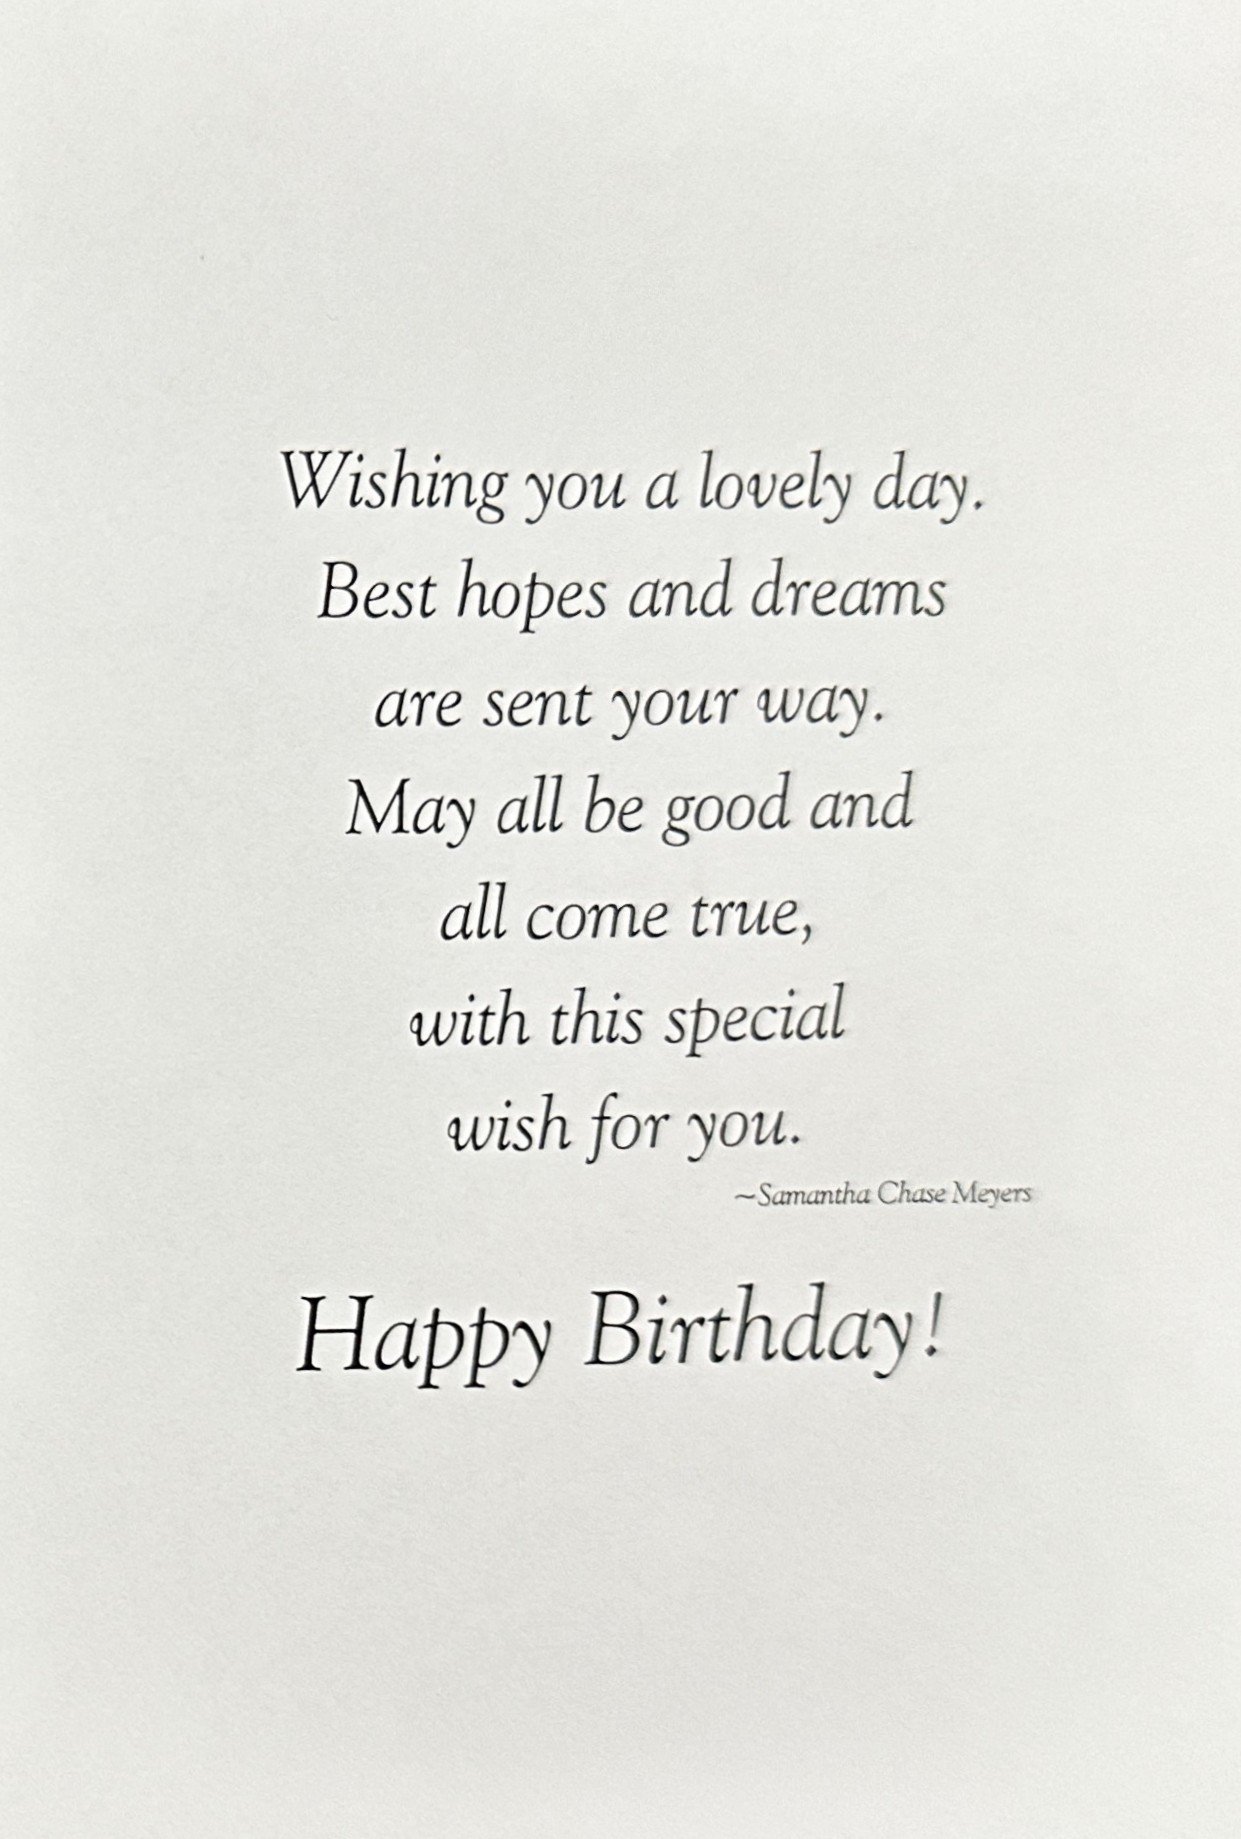 Wishing you a lovely day.
Best hopes and dreams
are sent your way.
May all be good and
all come true,
with this special
wish for you.
~Samantha Chase Meyers
Happy Birthday!